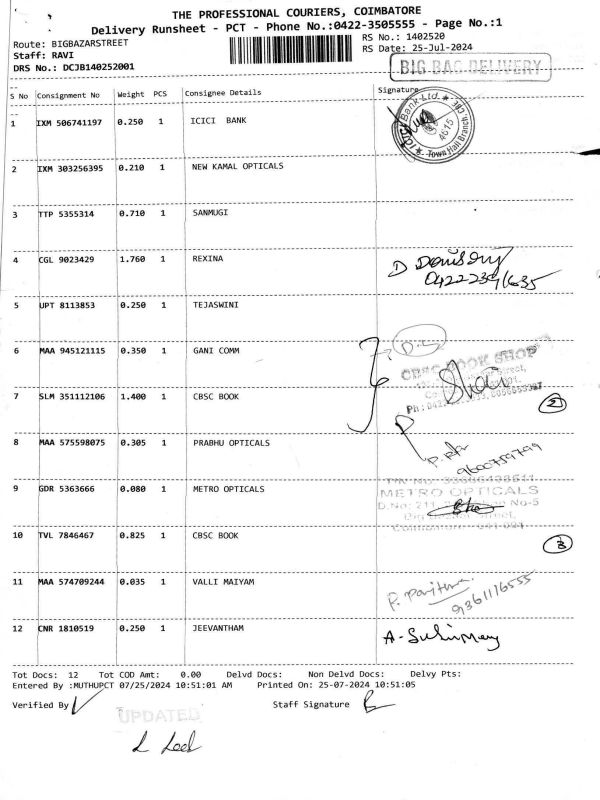 THE PROFESSIONAL COURIERS, COIMBATORE
Delivery Runsheet - PCT - Phone No.:0422-3505555 - Page No.:1
Route: BIGBAZARSTREET
RS No.: 1402520
Staff: RAVI
RS Date: 25-Jul-2024
DRS No.: DCJB140252001
BIG BAG DELIVERY
S No Consignment No Weight PCS Consignee Details Signature
1 IXM 506741197 0.250 1 ICICI BANK
ICICI Bank Ltd. 4615 Town Hall Branch
2 IXM 303256395 0.210 1 NEW KAMAL OPTICALS
3 TTP 5355314 0.710 1 SANMUGI
4 CGL 9023429 1.760 1 REXINA
5 UPT 8113853 0.250 1 TEJASWINI
6 MAA 945121115 0.350 1 GANI COMM
CBSC BOOK SHOP
7 SLM 351112106 1.400 1 CBSC BOOK
2
8 MAA 575598075 0.305 1 PRABHU OPTICALS
9600759799
9 GDR 5363666 0.080 1 METRO OPTICALS
METRO OPTICALS
10 TVL 7846467 0.825 1 CBSC BOOK
3
11 MAA 574709244 0.035 1 VALLI MAIYAM
9361116555
12 CNR 1810519 0.250 1 JEEVANTHAM
Tot Docs: 12 Tot COD Amt: 0.00 Delvd Docs: Non Delvd Docs: Delvy Pts:
Entered By :MUTHUPCT 07/25/2024 10:51:01 AM Printed On: 25-07-2024 10:51:05
Verified By
Staff Signature
UPDATED